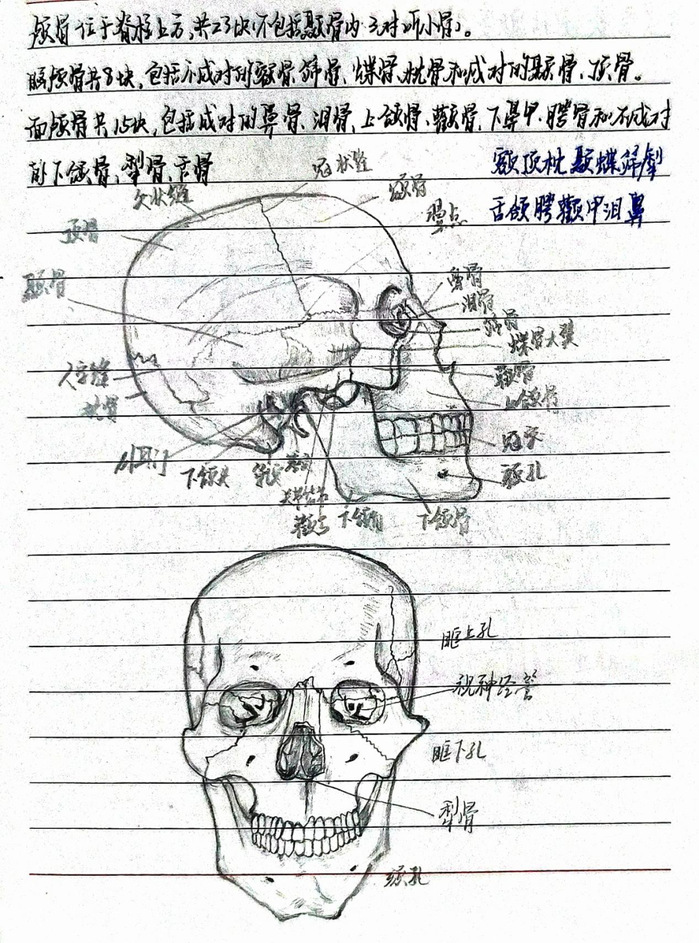 颅骨位于脊柱上方,共23块(不包括颞骨内三对听小骨)。
脑颅骨共8块,包括不成对的额骨、筛骨、蝶骨、枕骨和成对的颞骨、顶骨。
面颅骨共15块,包括成对的鼻骨、泪骨、上颌骨、颧骨、下鼻甲、腭骨和不成对
的下颌骨、犁骨、舌骨
额顶枕颞蝶筛犁
舌颌腭颧甲泪鼻
冠状缝
矢状缝
额骨
顶骨
翼点
颞骨
鼻骨
泪骨
筛骨
蝶骨大翼
人字缝
颧骨
上颌骨
枕骨
外耳门
下颌头
乳突
茎突
冠突
颏孔
颧弓
下颌角
下颌骨
眶上孔
视神经管
眶下孔
犁骨
颏孔